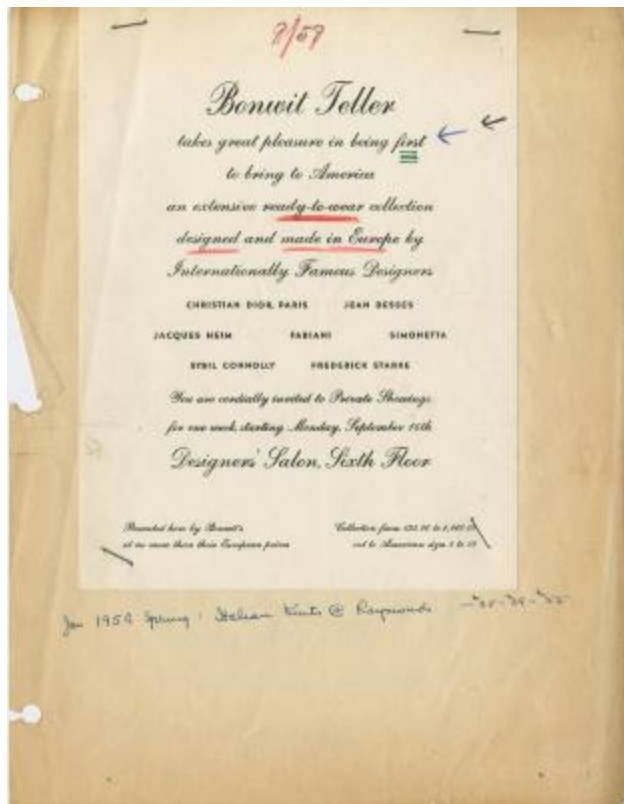 9/58
Bonwit Teller
takes great pleasure in being first
to bring to America
an extensive ready-to-wear collection
designed and made in Europe by
Internationally Famous Designers
CHRISTIAN DIOR, PARIS JEAN DESSES
JACQUES HEIM FABIANI SIMONETTA
SYBIL CONNOLLY FREDERICK STARKE
You are cordially invited to Private Showings
for one week, starting Monday, September 15th
Designers' Salon, Sixth Floor
Presented here by Bonwit's
at no more than their European prices
Collection from
cut to American size
Jan 1959 Spring: Italian Knits @ Raymonds